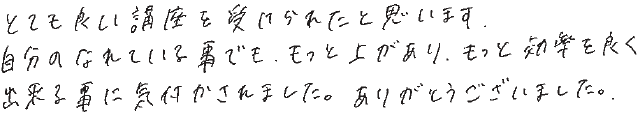 とても良い講座を受けられたと思います.
自分のなれている事でも、もっと上があり、もっと効率を良く
出来る事に気付かされました。ありがとうございました。.